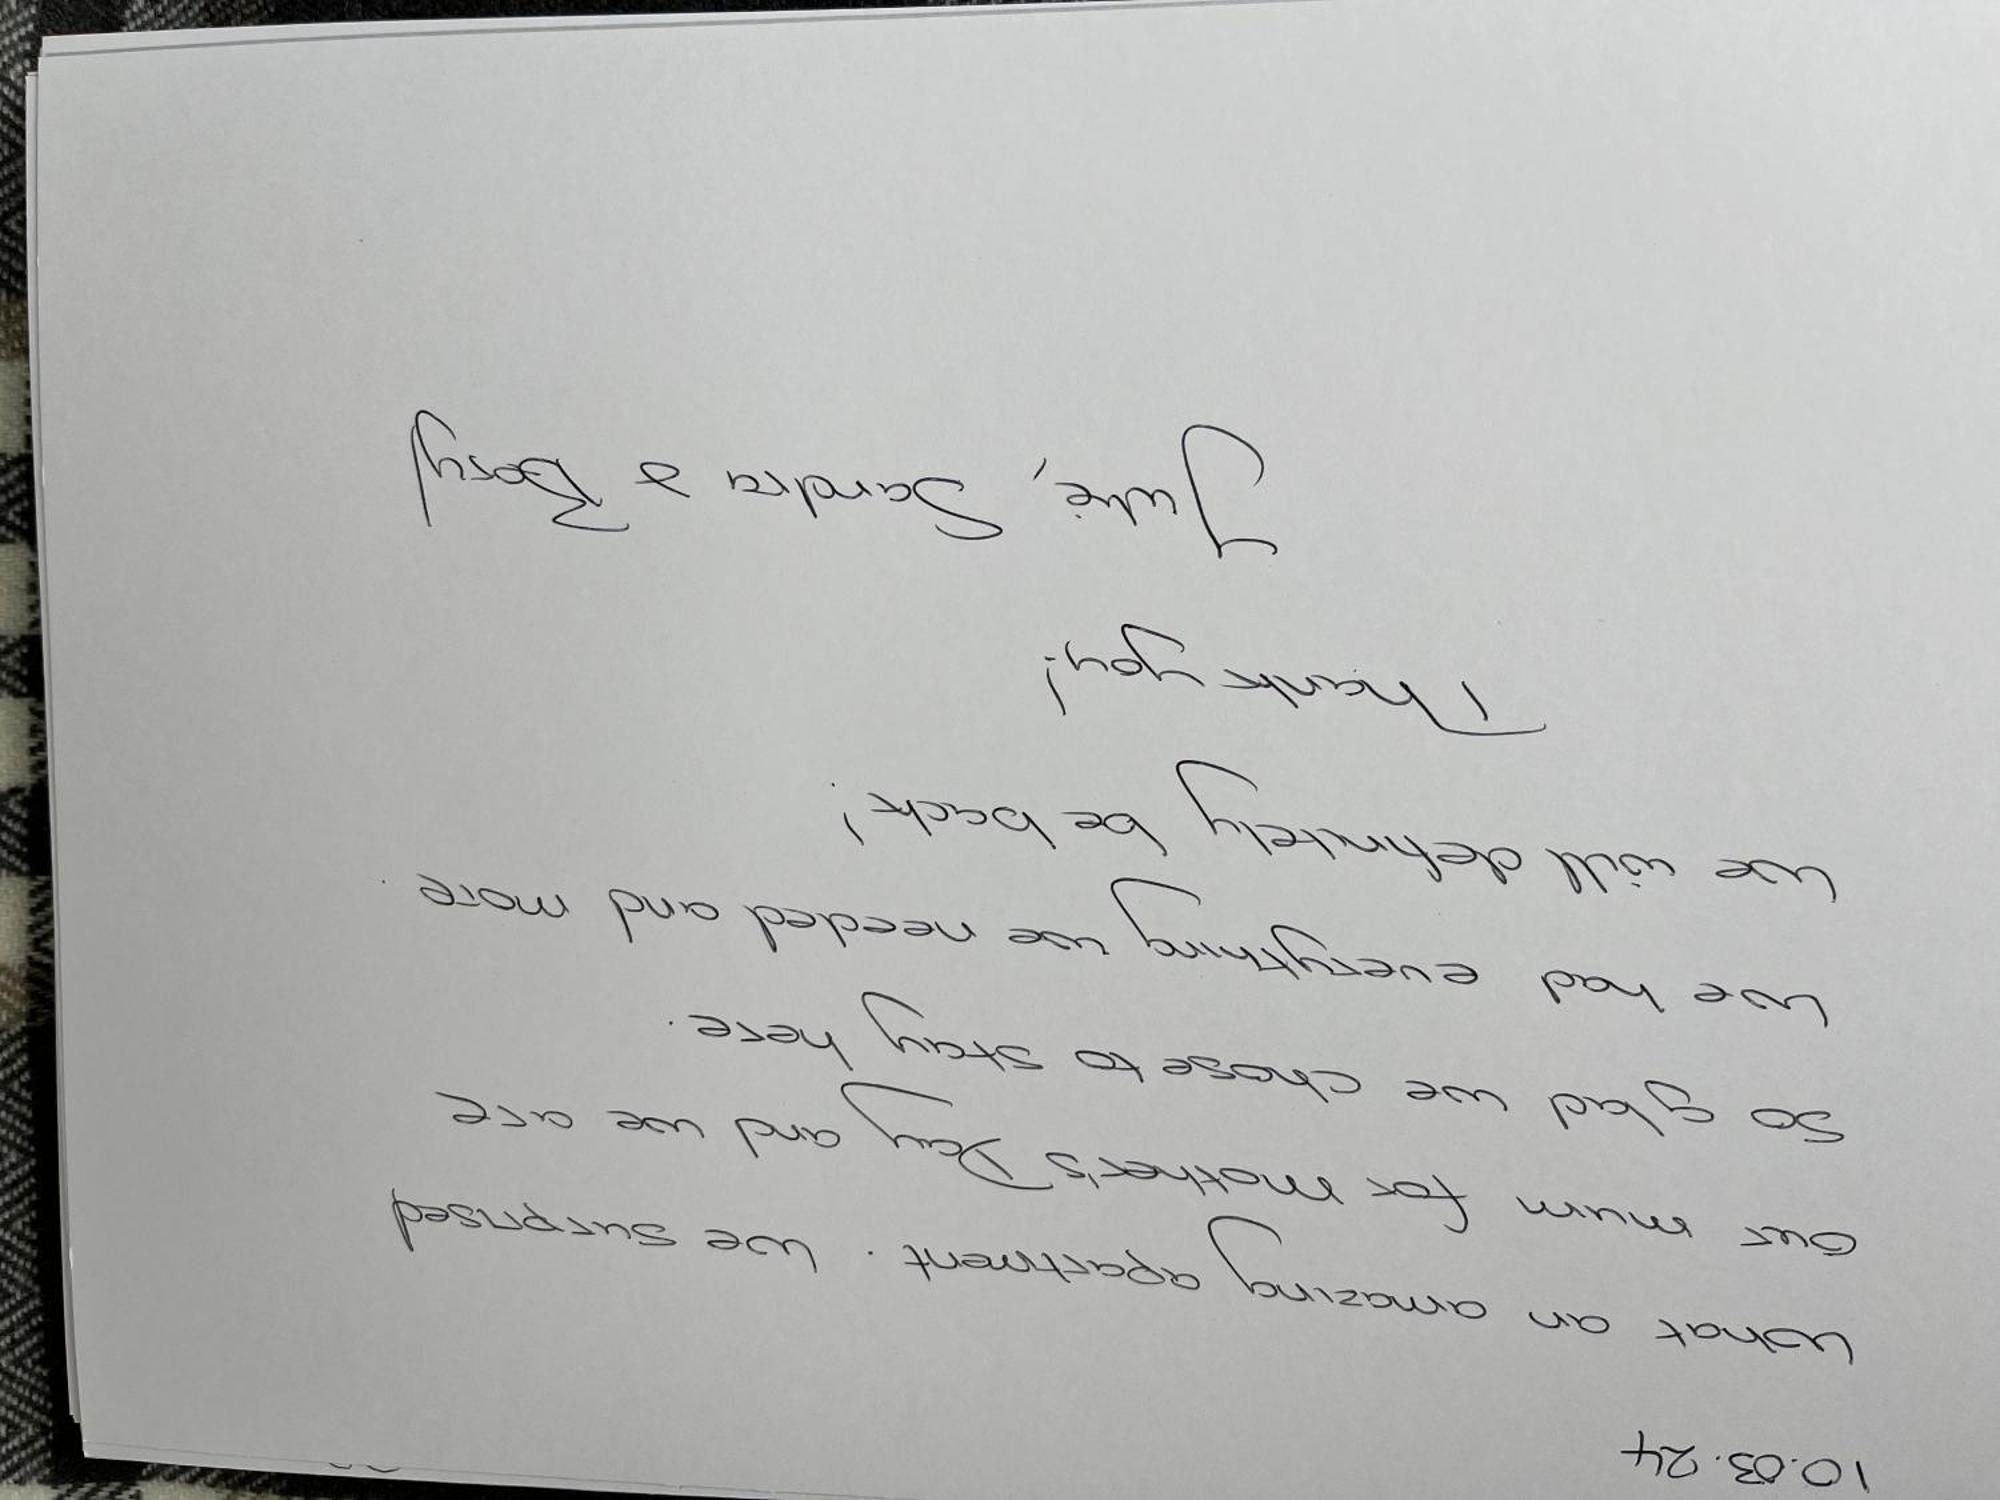 10.03.24
What an amazing apartment. We surprised
our mum for Mother's Day and we are
so glad we chose to stay here.
We had everything we needed and more.
We will definitely be back!
Thank you!
Julie, Sandra &